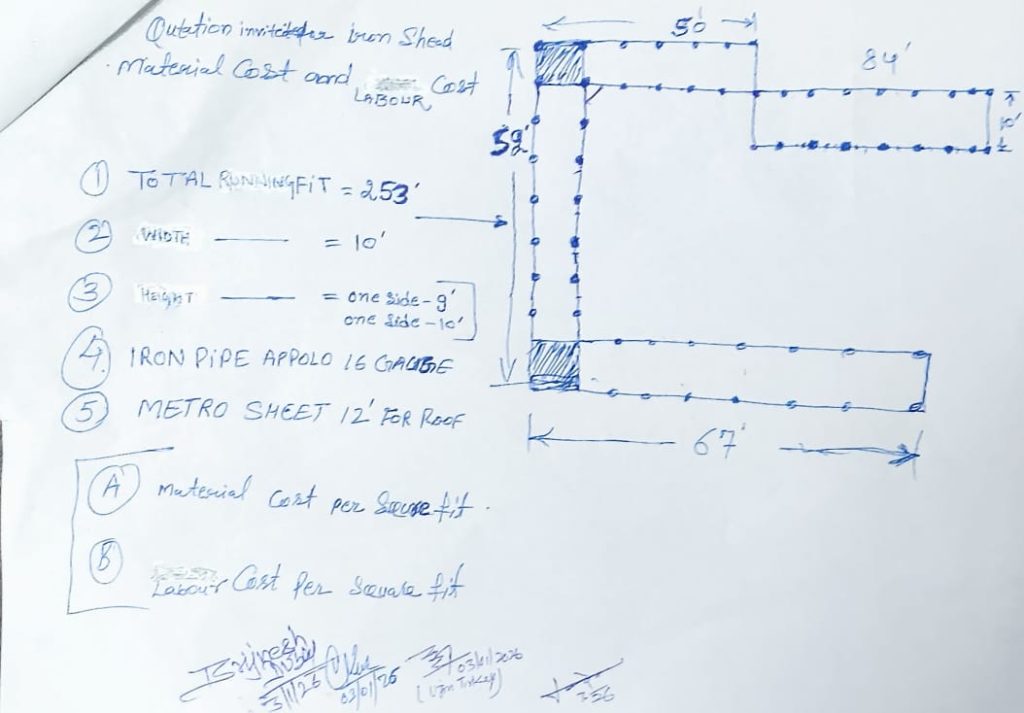 Qutation invited for iron Shead
Material Cost and LABOUR Cost
50'
84'
10'
52'
① TOTAL RUNNING FIT = 253'
② WIDTH —— = 10'
③ HEIGHT —— = one side - 9'
one side - 10'
④ IRON PIPE APPOLO 16 GAUGE
⑤ METRO SHEET 12' FOR ROOF
67'
Ⓐ Material Cost per Square fit.
Ⓑ Labour Cost Per Square fit
Brijnesh
3/1/26
03/01/26
03/01/2026